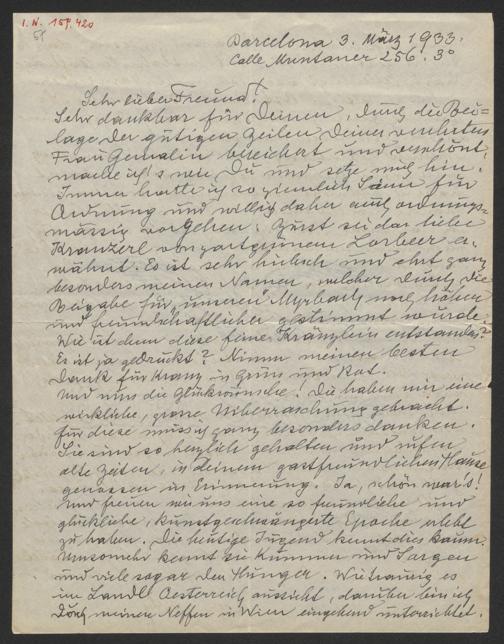 I. N. 157.420
Barcelona 3. März 1933.
Calle Muntaner 256. 3º
Sehr lieber Freund!
Sehr dankbar für Deinen, durch die Bei=
lage der gütigen Zeilen Deiner verehrten
Frau Gemalin bereichert und verschönt,
mache ich's wie Du und setze mich hin.
Immer hatte ich so ziemlich Sinn für
Ordnung und will daher auch ordnungs=
mässig vorgehen. Zuerst sei das liebe
Kranzerl von zartgrünem Lorbeer er=
wähnt. Es ist sehr hübsch und ehrt ganz
besonders meinen Namen, welcher durch die
Beigabe für unseren Myrbach noch höher
und freundschaftlicher gestimmt wurde.
Wie ist denn diese feine Kränzlein entstanden?
Es ist ja gedruckt? Nimm meinen besten
Dank für Kranz in Grün und Rot.
Und nun die Glükwünsche! Die haben mir eine
wirkliche, grosse Überraschung gebracht.
Für diese muss ich ganz besonders danken.
Sie sind so herzlich gehalten und rufen
alte Zeiten, in deinem gastfreundlichen Hause
genossen in Erinnerung. Ja, schön war's!
Und freuen wir uns eine so freundliche und
glückliche, kunstgeschwängerte Epoche erlebt
zu haben. Die heutige Jugend kennt dies kaum.
Umsomehr kennt sie Kummer und Sorgen
und viele sogar den Hunger. Wie traurig es
im Landl Oesterreich aussieht, darüber bin ich
durch meinen Neffen in Wien eingehend unterrichtet.